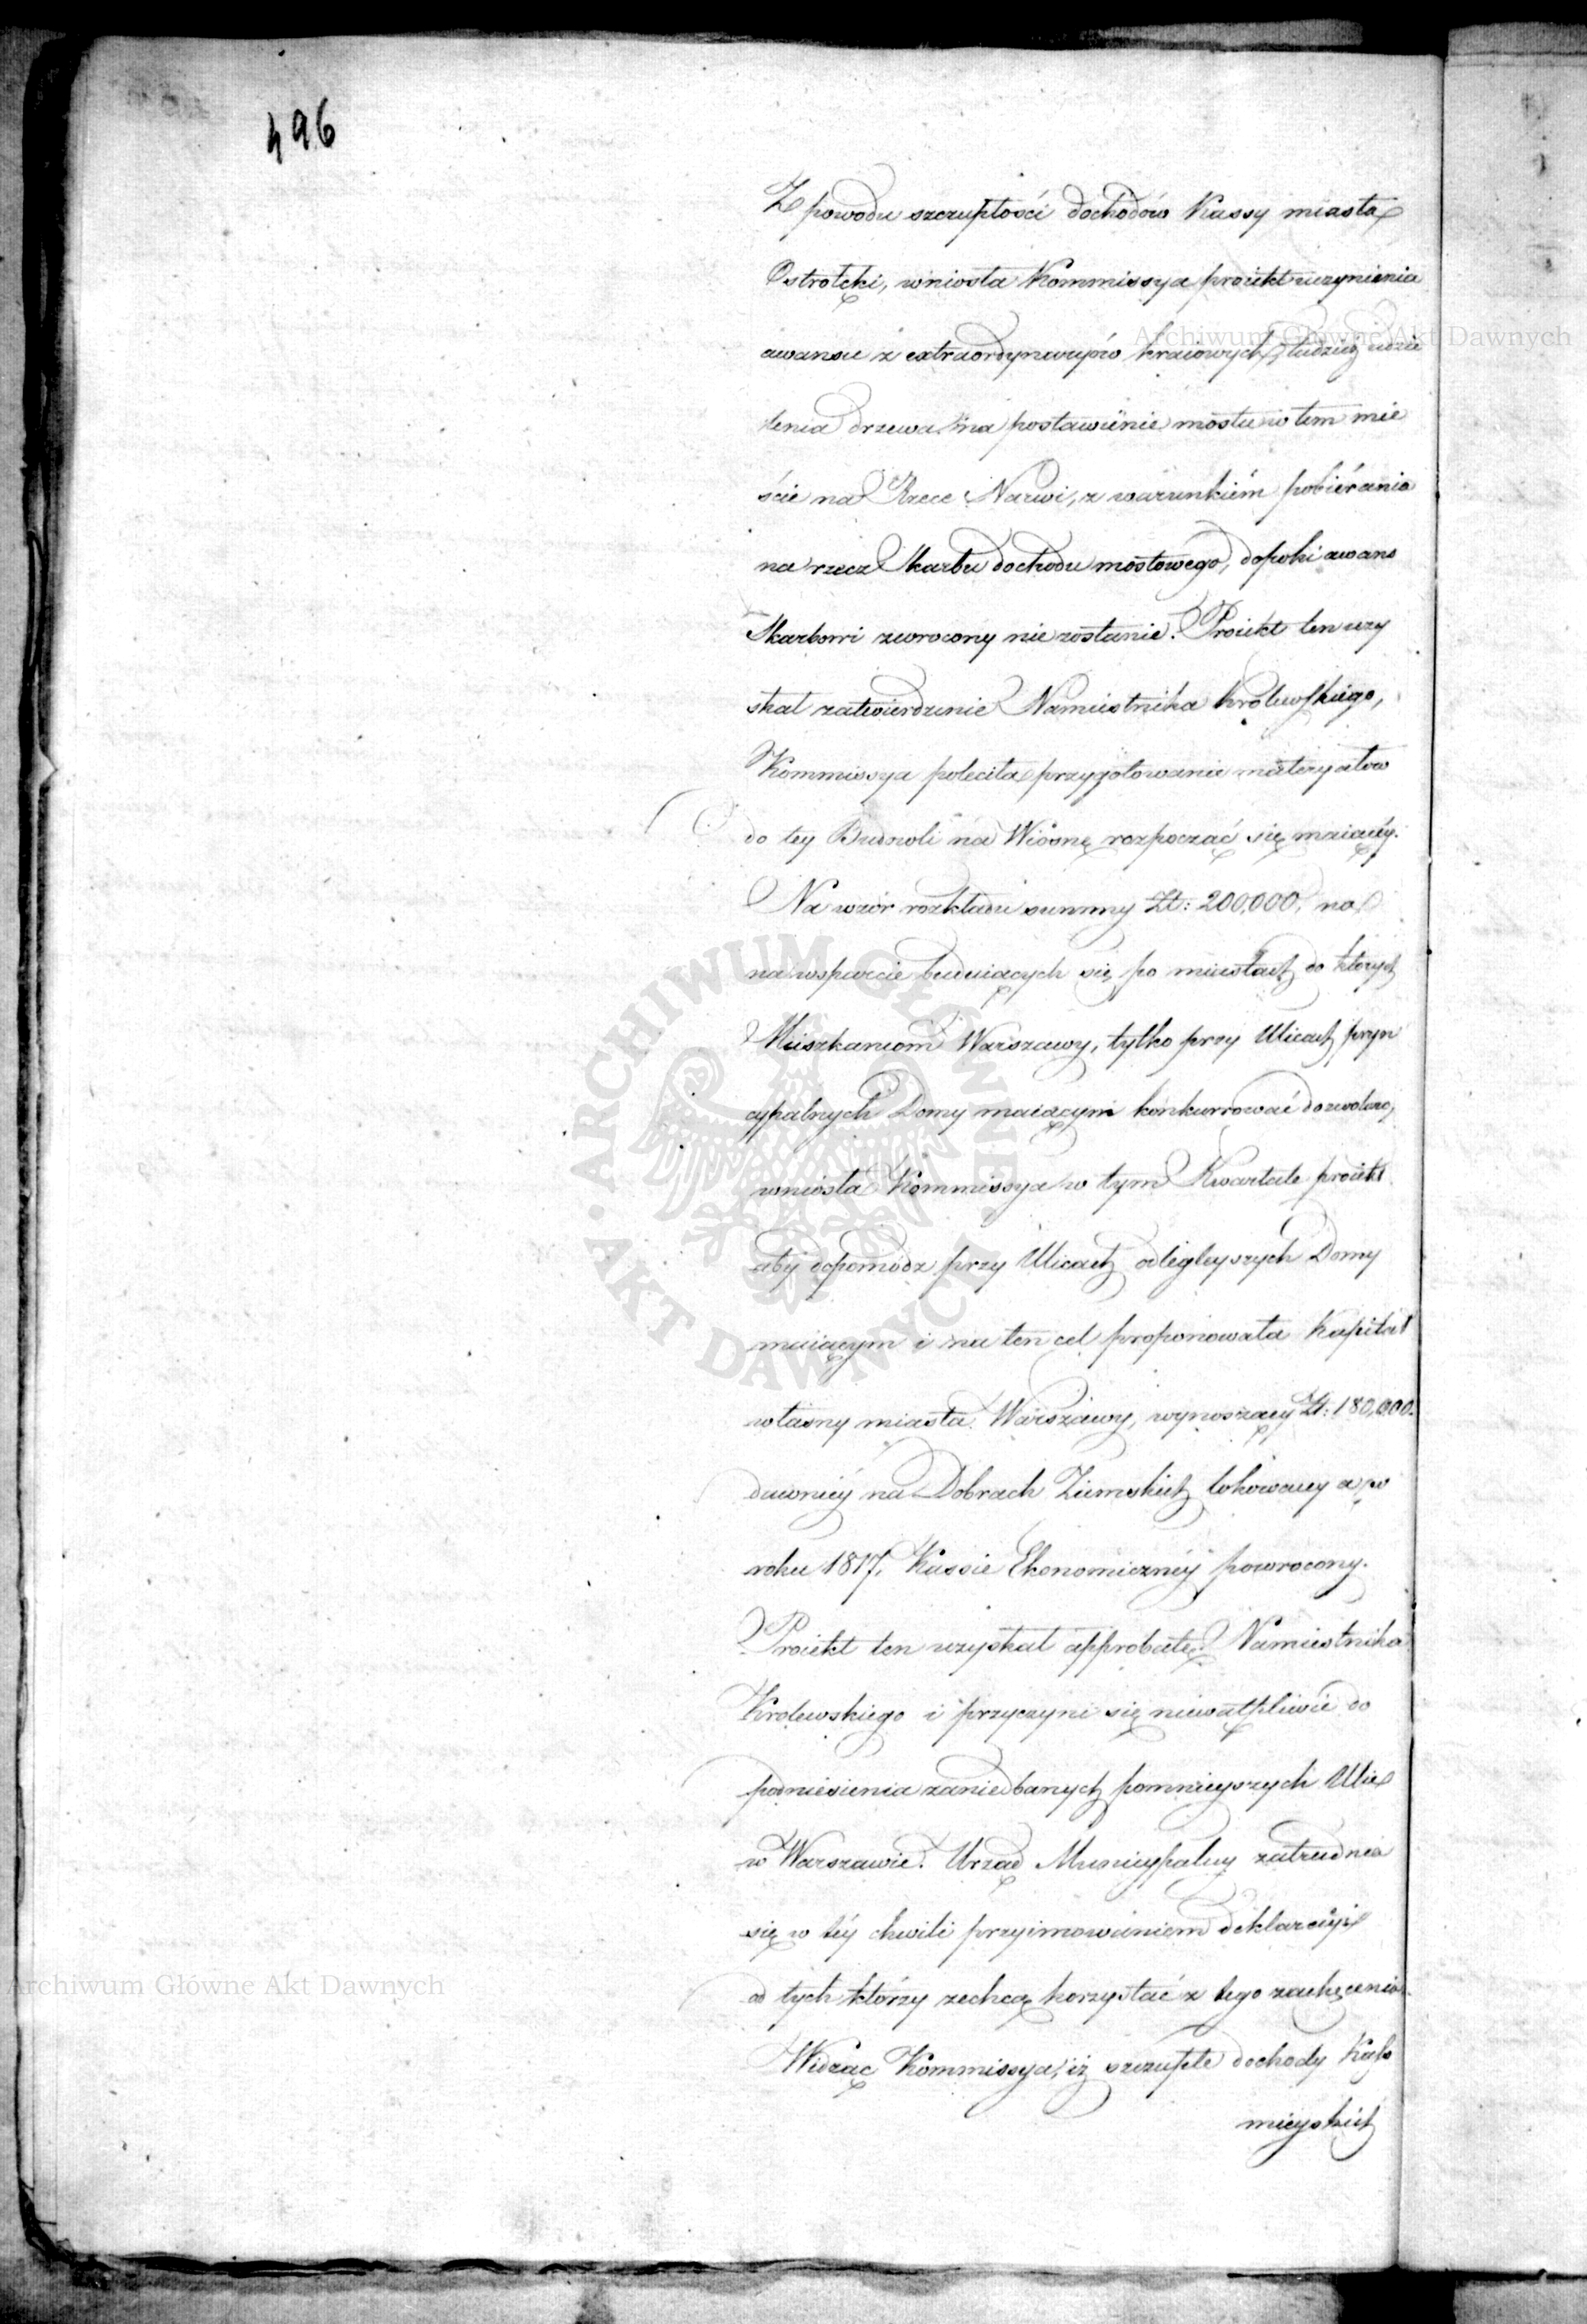 496
Z powodu szczupłości dochodów Kassy miasta
Ostrołęki, wniosła Kommissya proiekt uczynienia
awansu z extraordynaryów kraiowych, tudzież udzie
lenia drzewa na postawienie mostu w tem mie
ście na Rzece Narwi, z warunkiém pobiérania
na rzecz Skarbu dochodu mostowego, dopoki awans
Skarbowi zwrocony nie zostanie. Proiekt ten uzy
skał zatwierdzenie Namiestnika Królewskiego,
Kommissya poleciła przygotowanie materyałow
do tey Budowli na Wiosnę rozpocząć się maiącéy.
Na wzór rozkładu summy Zł: 200,000, na
na wsparcie buduiących się po miastach do których
Mieszkańcom Warszawy, tylko przy Ulicach pryn
cypalnych Domy maiącym konkurrować dozwolono,
wniosła Kommissya w tym Kwartale proiekt
aby dopomódz przy Ulicach odlegleyszych Domy
maiącym i na ten cel proponowała Kapitał
własny miasta Warszawy, wynoszący Zł: 180,000.
dawniéy na Dobrach Ziemskich lokowany a w
roku 1817, Kassie Ekonomicznéy powrocony.
Proiekt ten uzyskał approbatę Namiestnika
Krolewskiego i przyczyni się niewątpliwie do
podniesienia zaniedbanych pomnieyszych Ulic
w Warszawie. Urząd Municypalny zatrudnia
się w téy chwili przyimowaniem deklaracyi
od tych, którzy zechcą korzystać z tego zachęcenia.
Widząc Kommissya, iż szczupłe dochody Kass
mieyskich
Archiwum Główne Akt Dawnych
ARCHIWUM GŁÓWNE · AKT DAWNYCH ·
Archiwum Główne Akt Dawnych